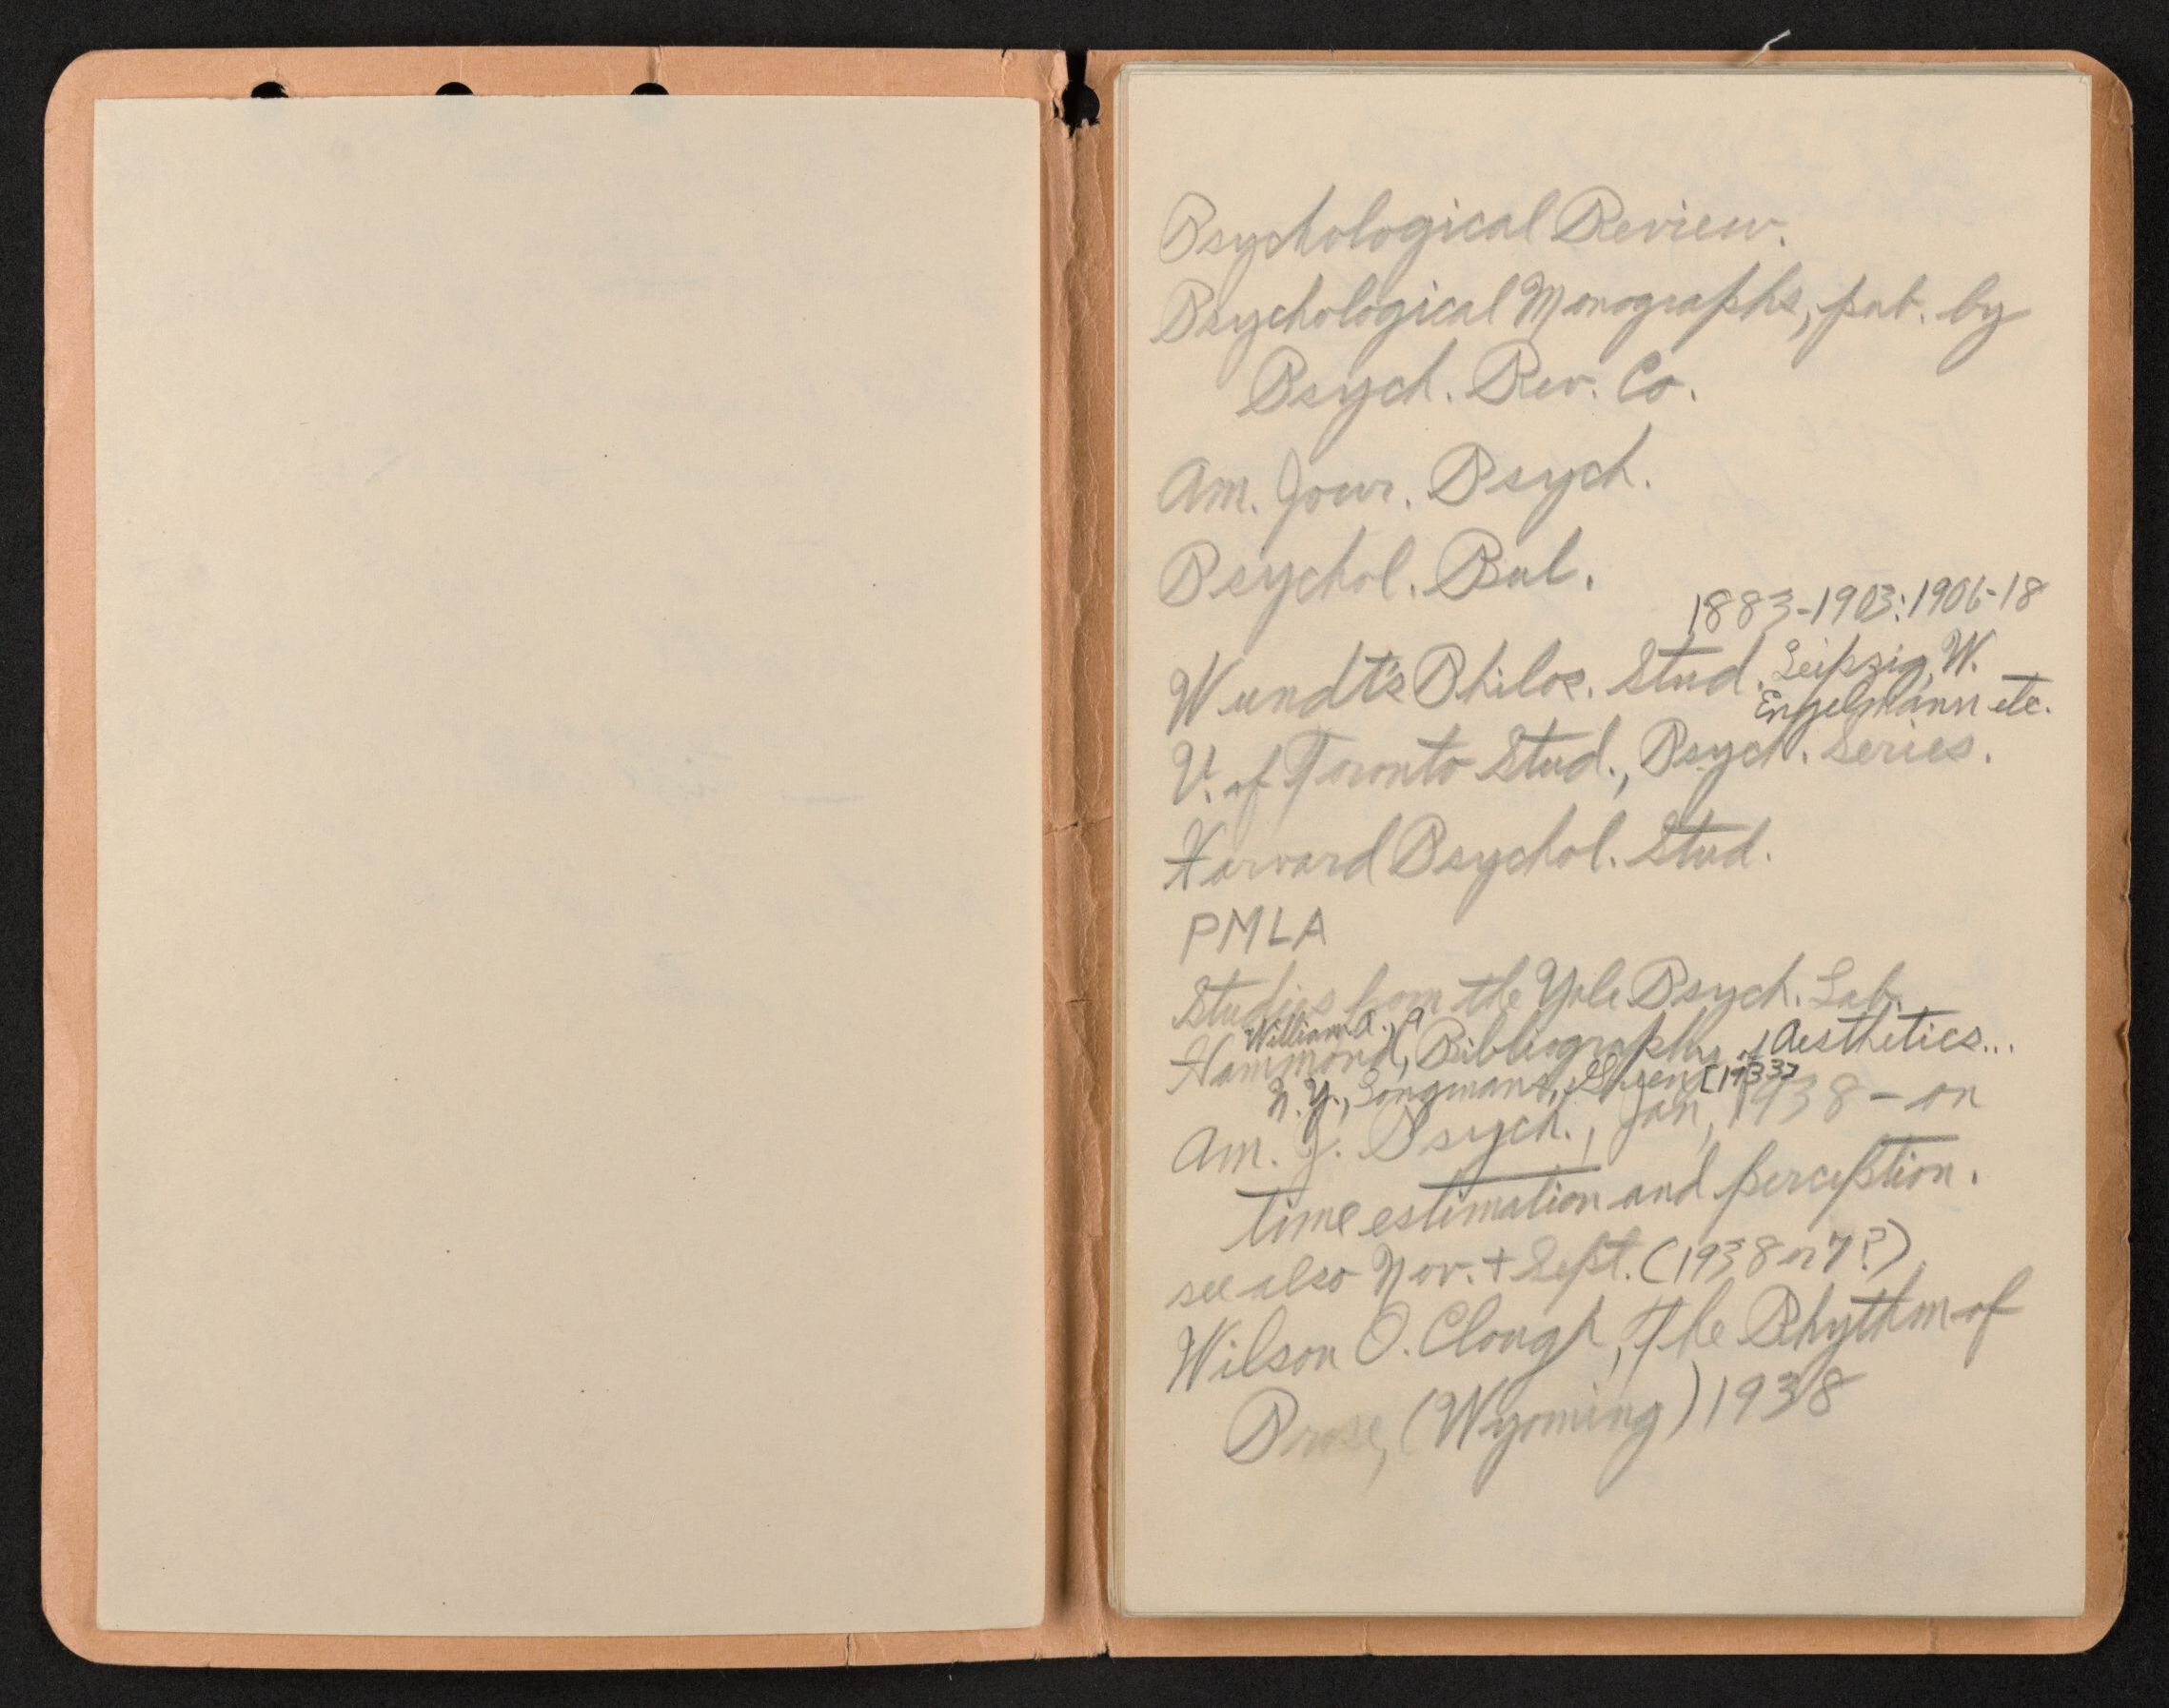 Psychological Review.
Psychological Monographs, pub. by
Psych. Rev. Co.
Am. Jour. Psych.
Psychol. Bul.
1883-1903: 1906-18
Wundt's Philos. Stud. Leipzig, W.
Engelmann etc.
U. of Toronto Stud., Psych. Series.
Harvard Psychol. Stud.
PMLA
Studies from the Yale Psych. Lab.
William A., A
Hammond, Bibliography of Aesthetics...
N.Y., Longmans, Green [1933]
Am. J. Psych., Jan, 1938 - on
time estimation and perception.
see also Nov. + Sept. (1938 or 7?)
Wilson O. Clough, The Rhythm of
Prose, (Wyoming) 1938